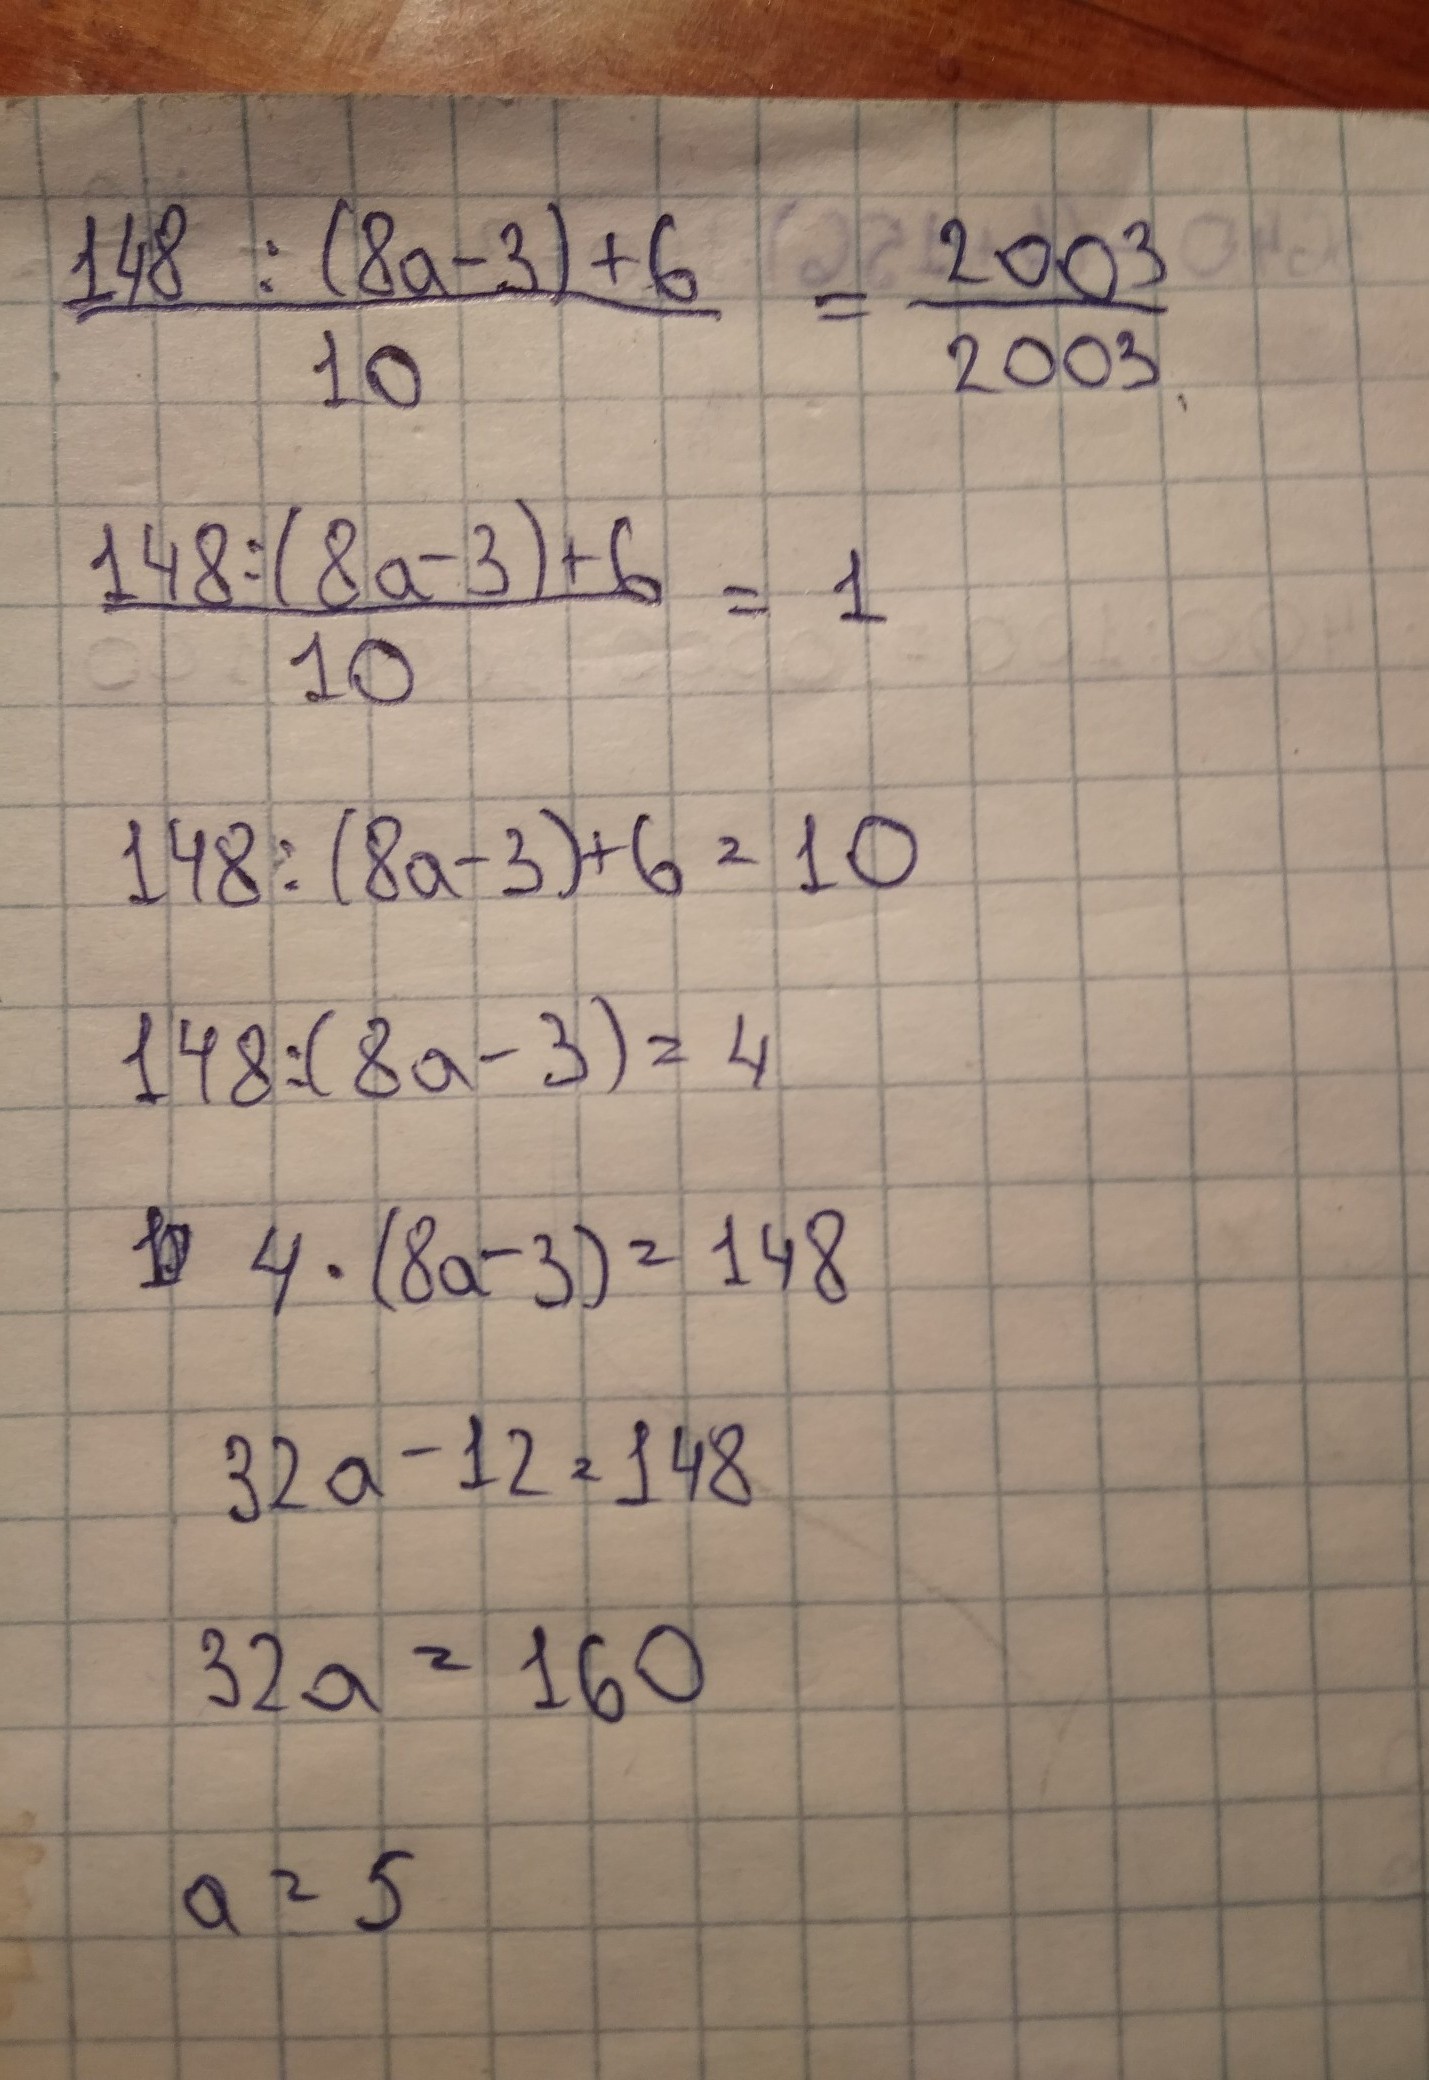 148 : (8a-3)+6 = 2003
10 2003
148:(8a-3)+6 = 1
10
148:(8a-3)+6 = 10
148:(8a-3) = 4
4·(8a-3) = 148
32a-12=148
32a = 160
a = 5